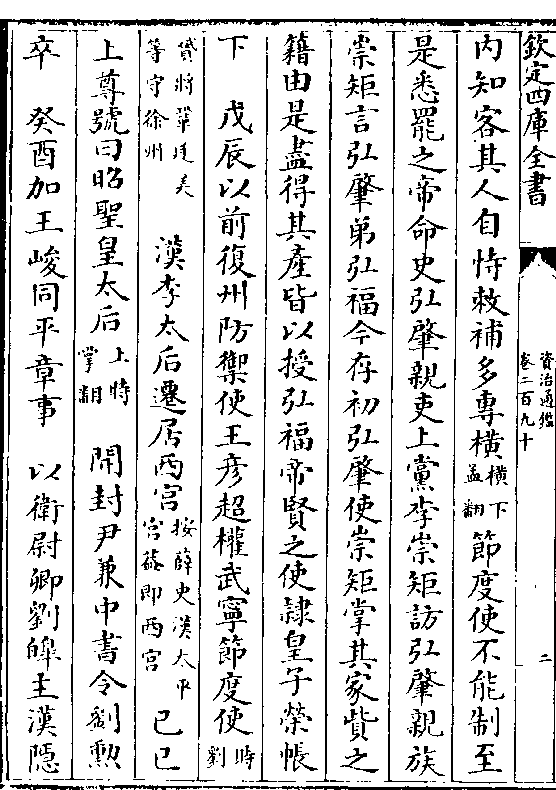 欽定四庫全書
資治通鑑
卷二百九十
二
内知客其人自恃敕補多專横横下孟翻節度使不能制至
是悉罷之帝命史弘肇親吏上黨李崇矩訪弘肇親族
崇矩言弘肇弟弘福今存初弘肇使崇矩掌其家貲之
籍由是盡得其產皆以授弘福帝賢之使隸皇子榮帳
下　戊辰以前復州防禦使王彦超權武寧節度使時劉
贇將鞏廷美等守徐州　漢李太后遷居西宫按薛史漢太平宫蓋即西宫己巳
上尊號曰昭聖皇太后上時掌翻　開封尹兼中書令劉勲
卒　癸酉加王峻同平章事　以衛尉卿劉皥主漢隱